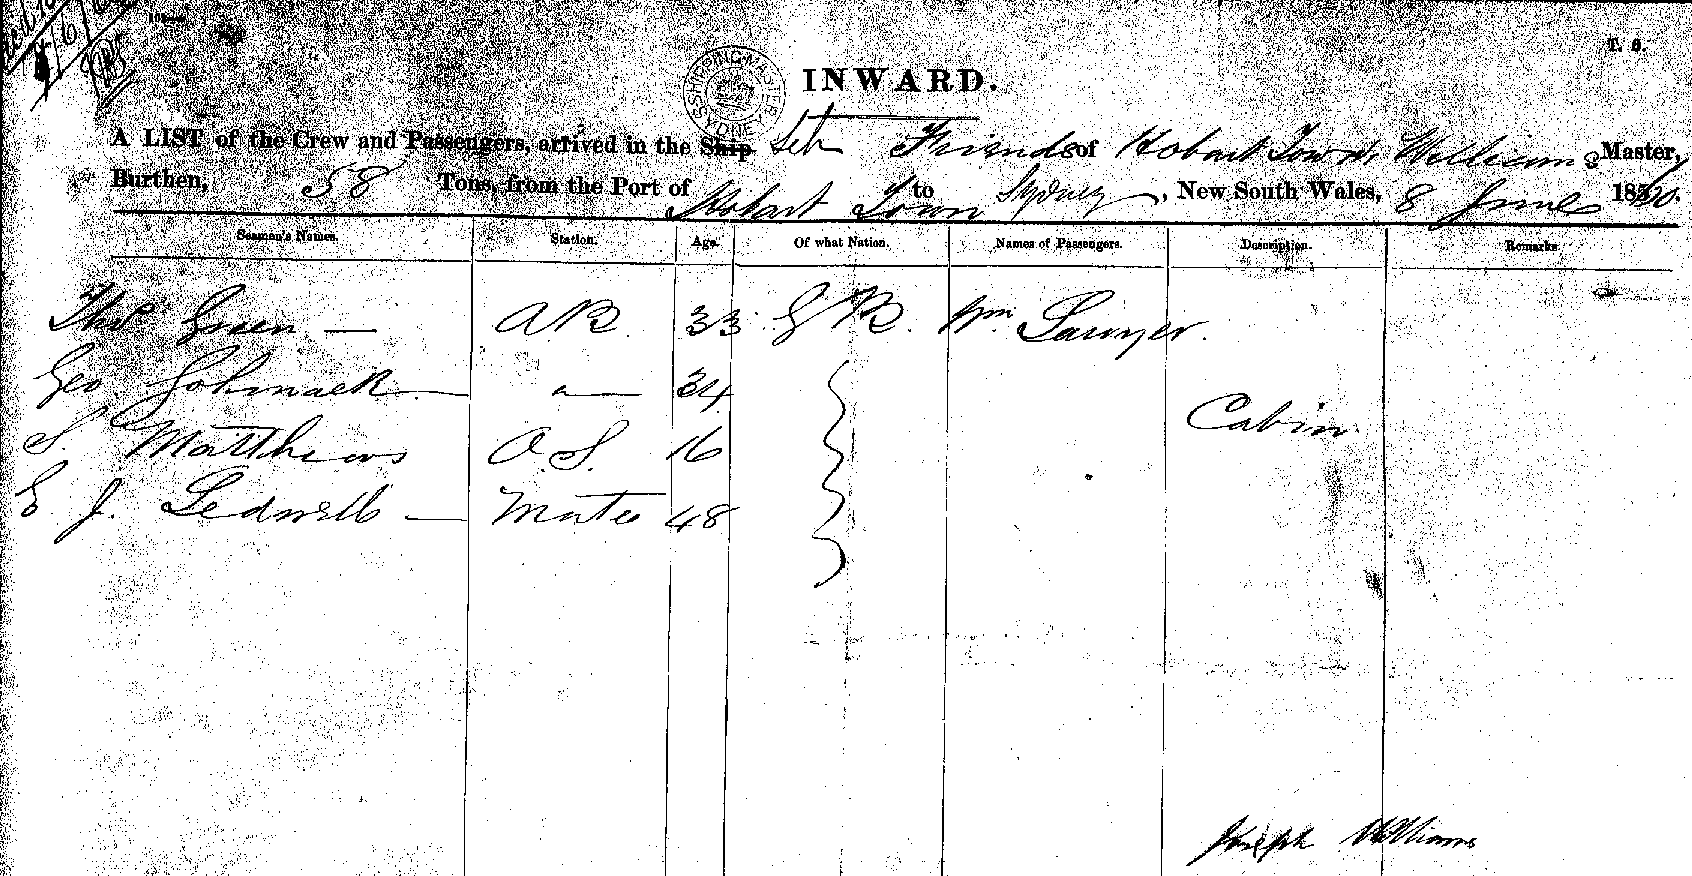 T. 6.
SHIPPING MASTERS SYDNEY
INWARD.
A LIST of the Crew and Passengers, arrived in the Ship Sch Friends of Hobart Town, Williams Master,
Burthen, 58 Tons, from the Port of Hobart Town to Sydney, New South Wales, 8 June 18
Seamen's Names. Station. Age. Of what Nation. Names of Passengers. Description. Remarks
Thos Green — AB. 33 G B. Wm Sawyer.
Geo — 34
Cabin
S. Matthews O.S. 16
E J. Ledwell — Mate 48
Joseph Williams